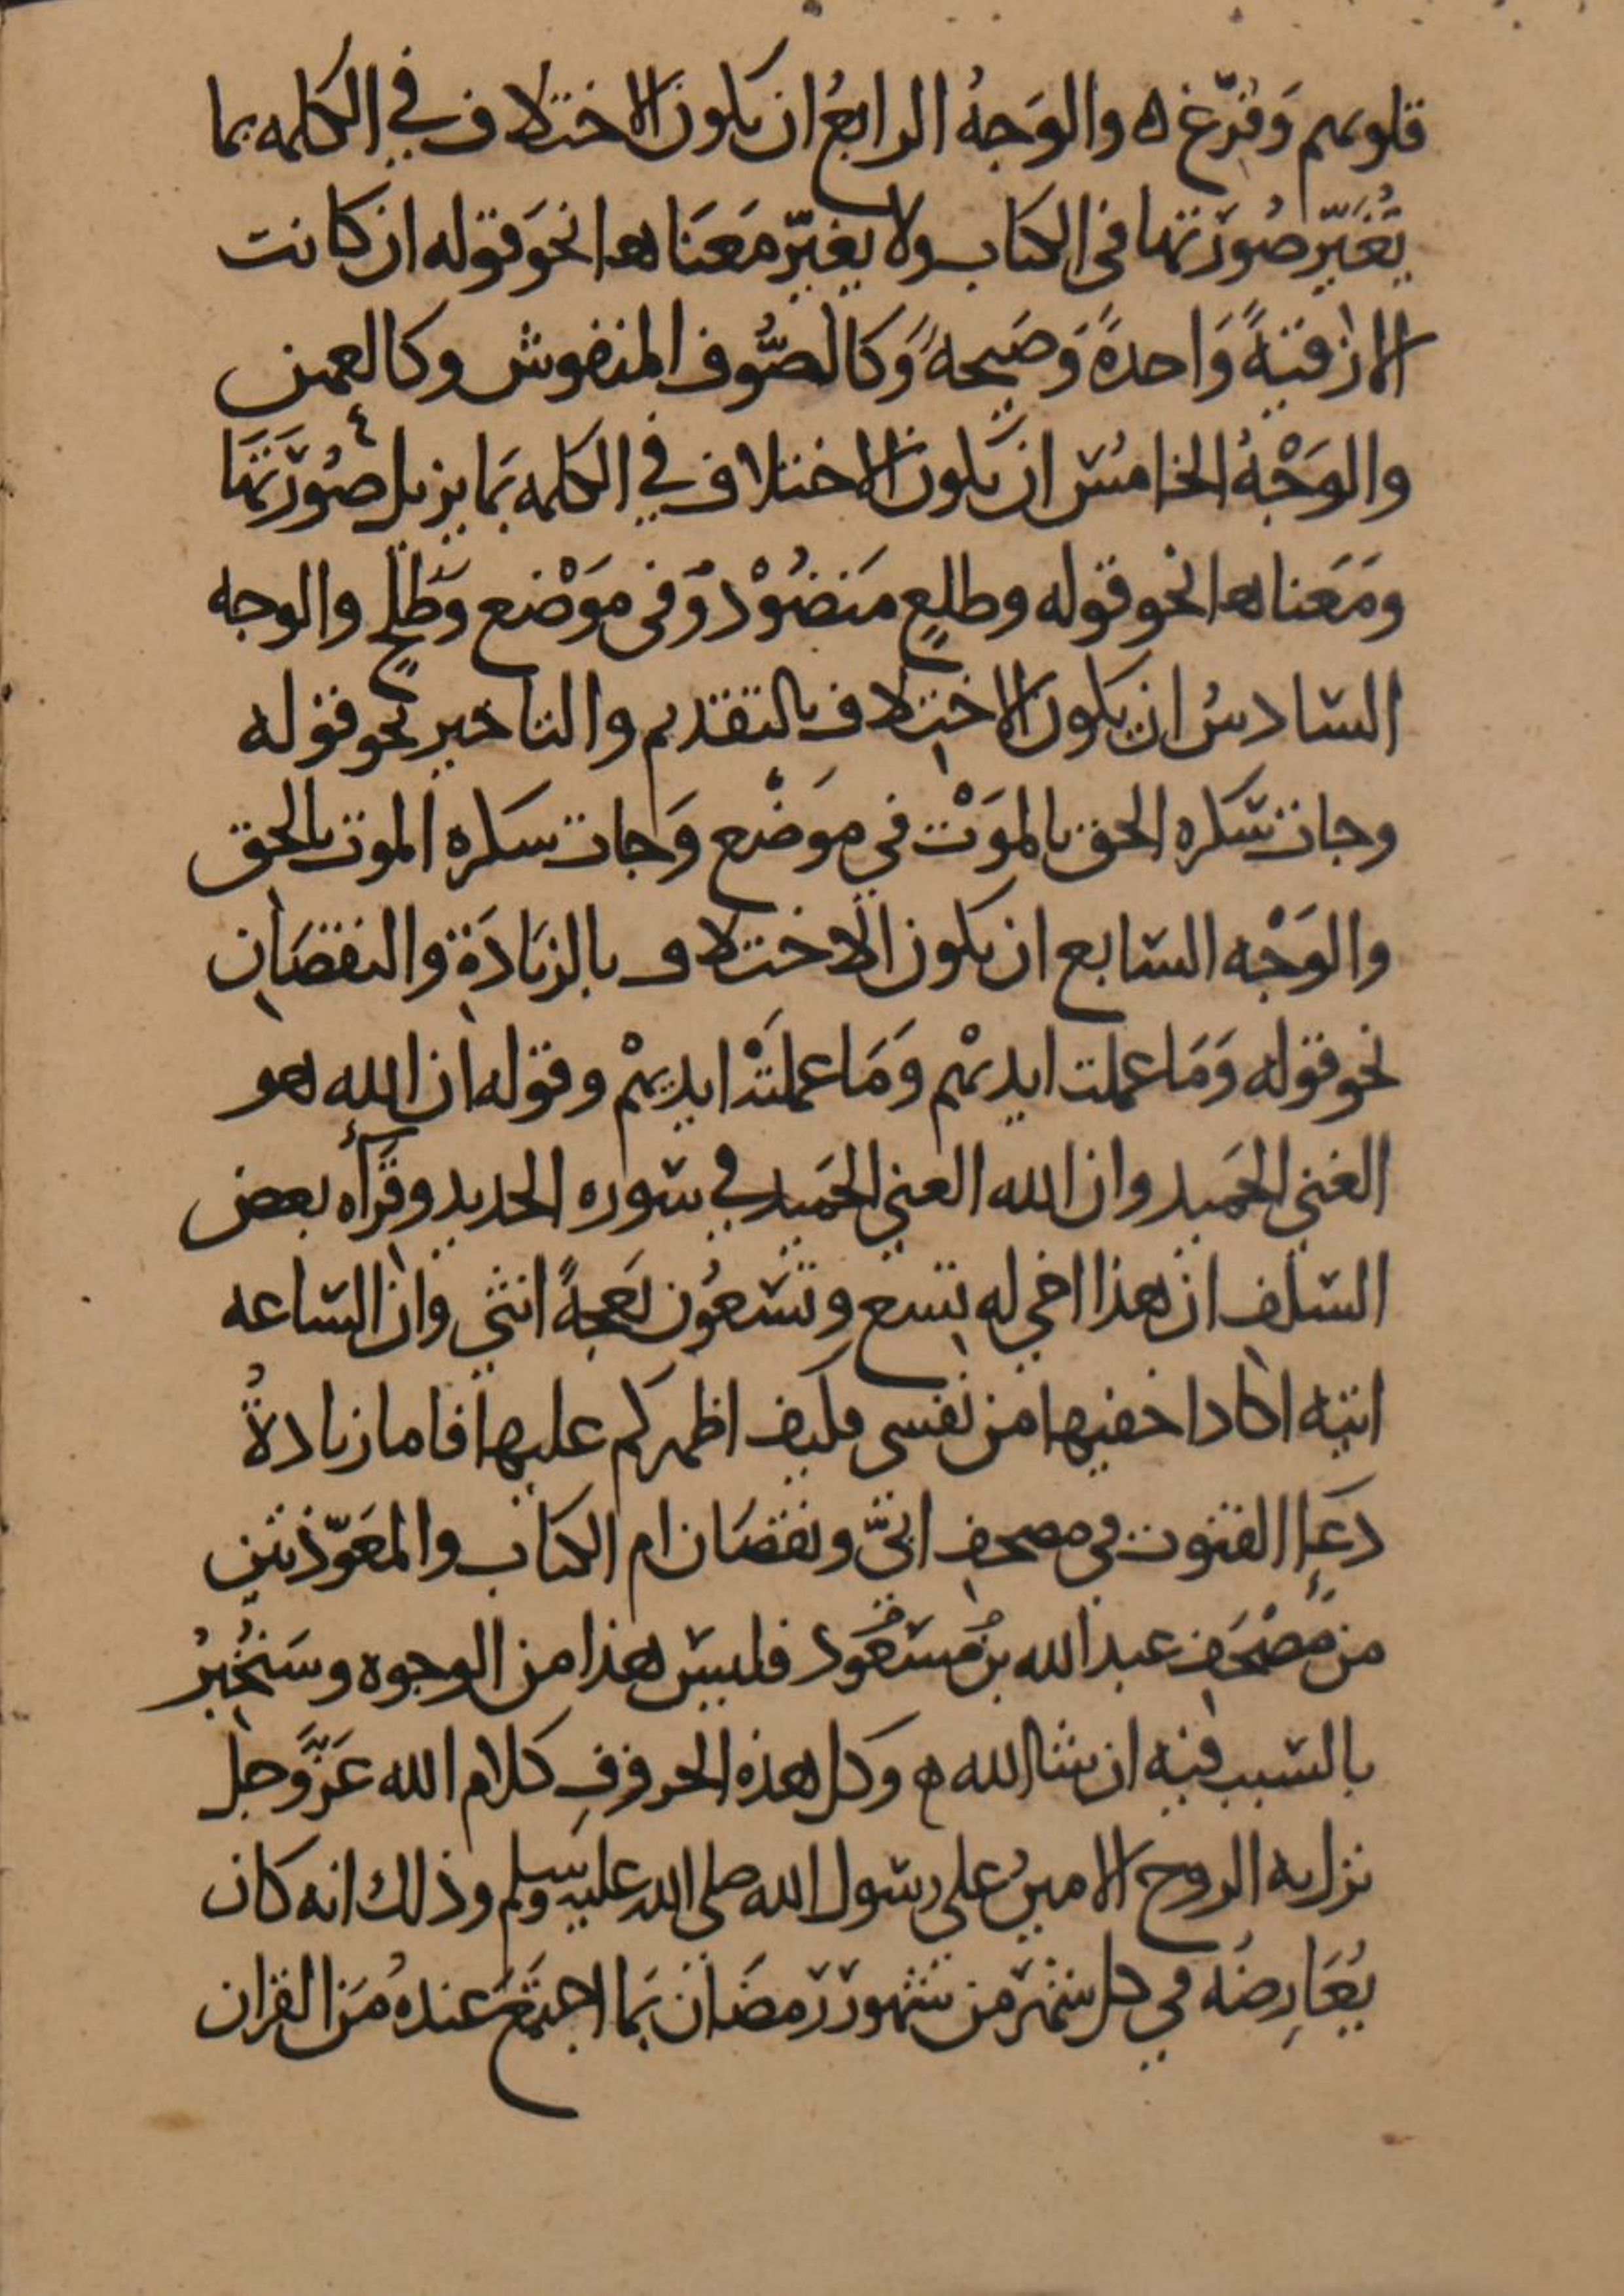 قلوبهم وَفُرِّغ ه والوَجهُ الرابعُ ان يكون الاختلاف في الكلمه بما
يُغَيّر صُورَتها في الكتاب ولا يغيّر مَعنَاها نحَو قوله ان كانت
الا زقيَةً وَاحدةً وَصَيحةً وَكالصُّوف المنفوش وكالعهن
والوَجْهُ الخامسُ ان يكون الاختلاف في الكلمه بمَا يزيل صُورَتَهَا
ومَعَناها نحو قوله وطلعٍ مَنضُوْدٍ وَفى مَوْضع وَطَلحٍ والوجه
السادسُ ان يكون الاختلاف بالتقديم والتاخير نحو قوله
وجات سَكره الحق بالمَوْت في مَوضْع وَجات سكره الموت بالحق
والوَجْه السابع ان يكون الاختلاف بالزيَادَة والنقصَان
نحو قوله وَمَا عملت ايديهْم وَمَا عملتْهُ ايديهمْ وقوله ان الله هو
الغني الحَميد وان الله الغني الحَميد في سوره الحديد وقَرأه بعض
السَلَف ان هذا اخي له تسع وتسَعُون نَعجةً انثى وان الساعه
اتيه اكاد اخفيها من نفسي فكيف اظهركم عليها فاما زيادةُ
دعَاِ القنوت في مصحف ابيّ ونقصَان ام الكتاب والمعَوّذتين
من مُصْحَف عبد الله بن مَسْعُود فليسَ هذا من الوجوه وسَنُخبرُ
بالسَبب فيه ان شا الله ه وكل هذه الحروفِ كلام الله عَزَّوَجل
نزل به الروح الامينُ على رسول الله صلى الله عليه وسلم وذلك انه كان
يُعَارِضهُ في كل شهَر من شهور رَمضَان بمَا اجتَمَعَ عندهُ مَن القران